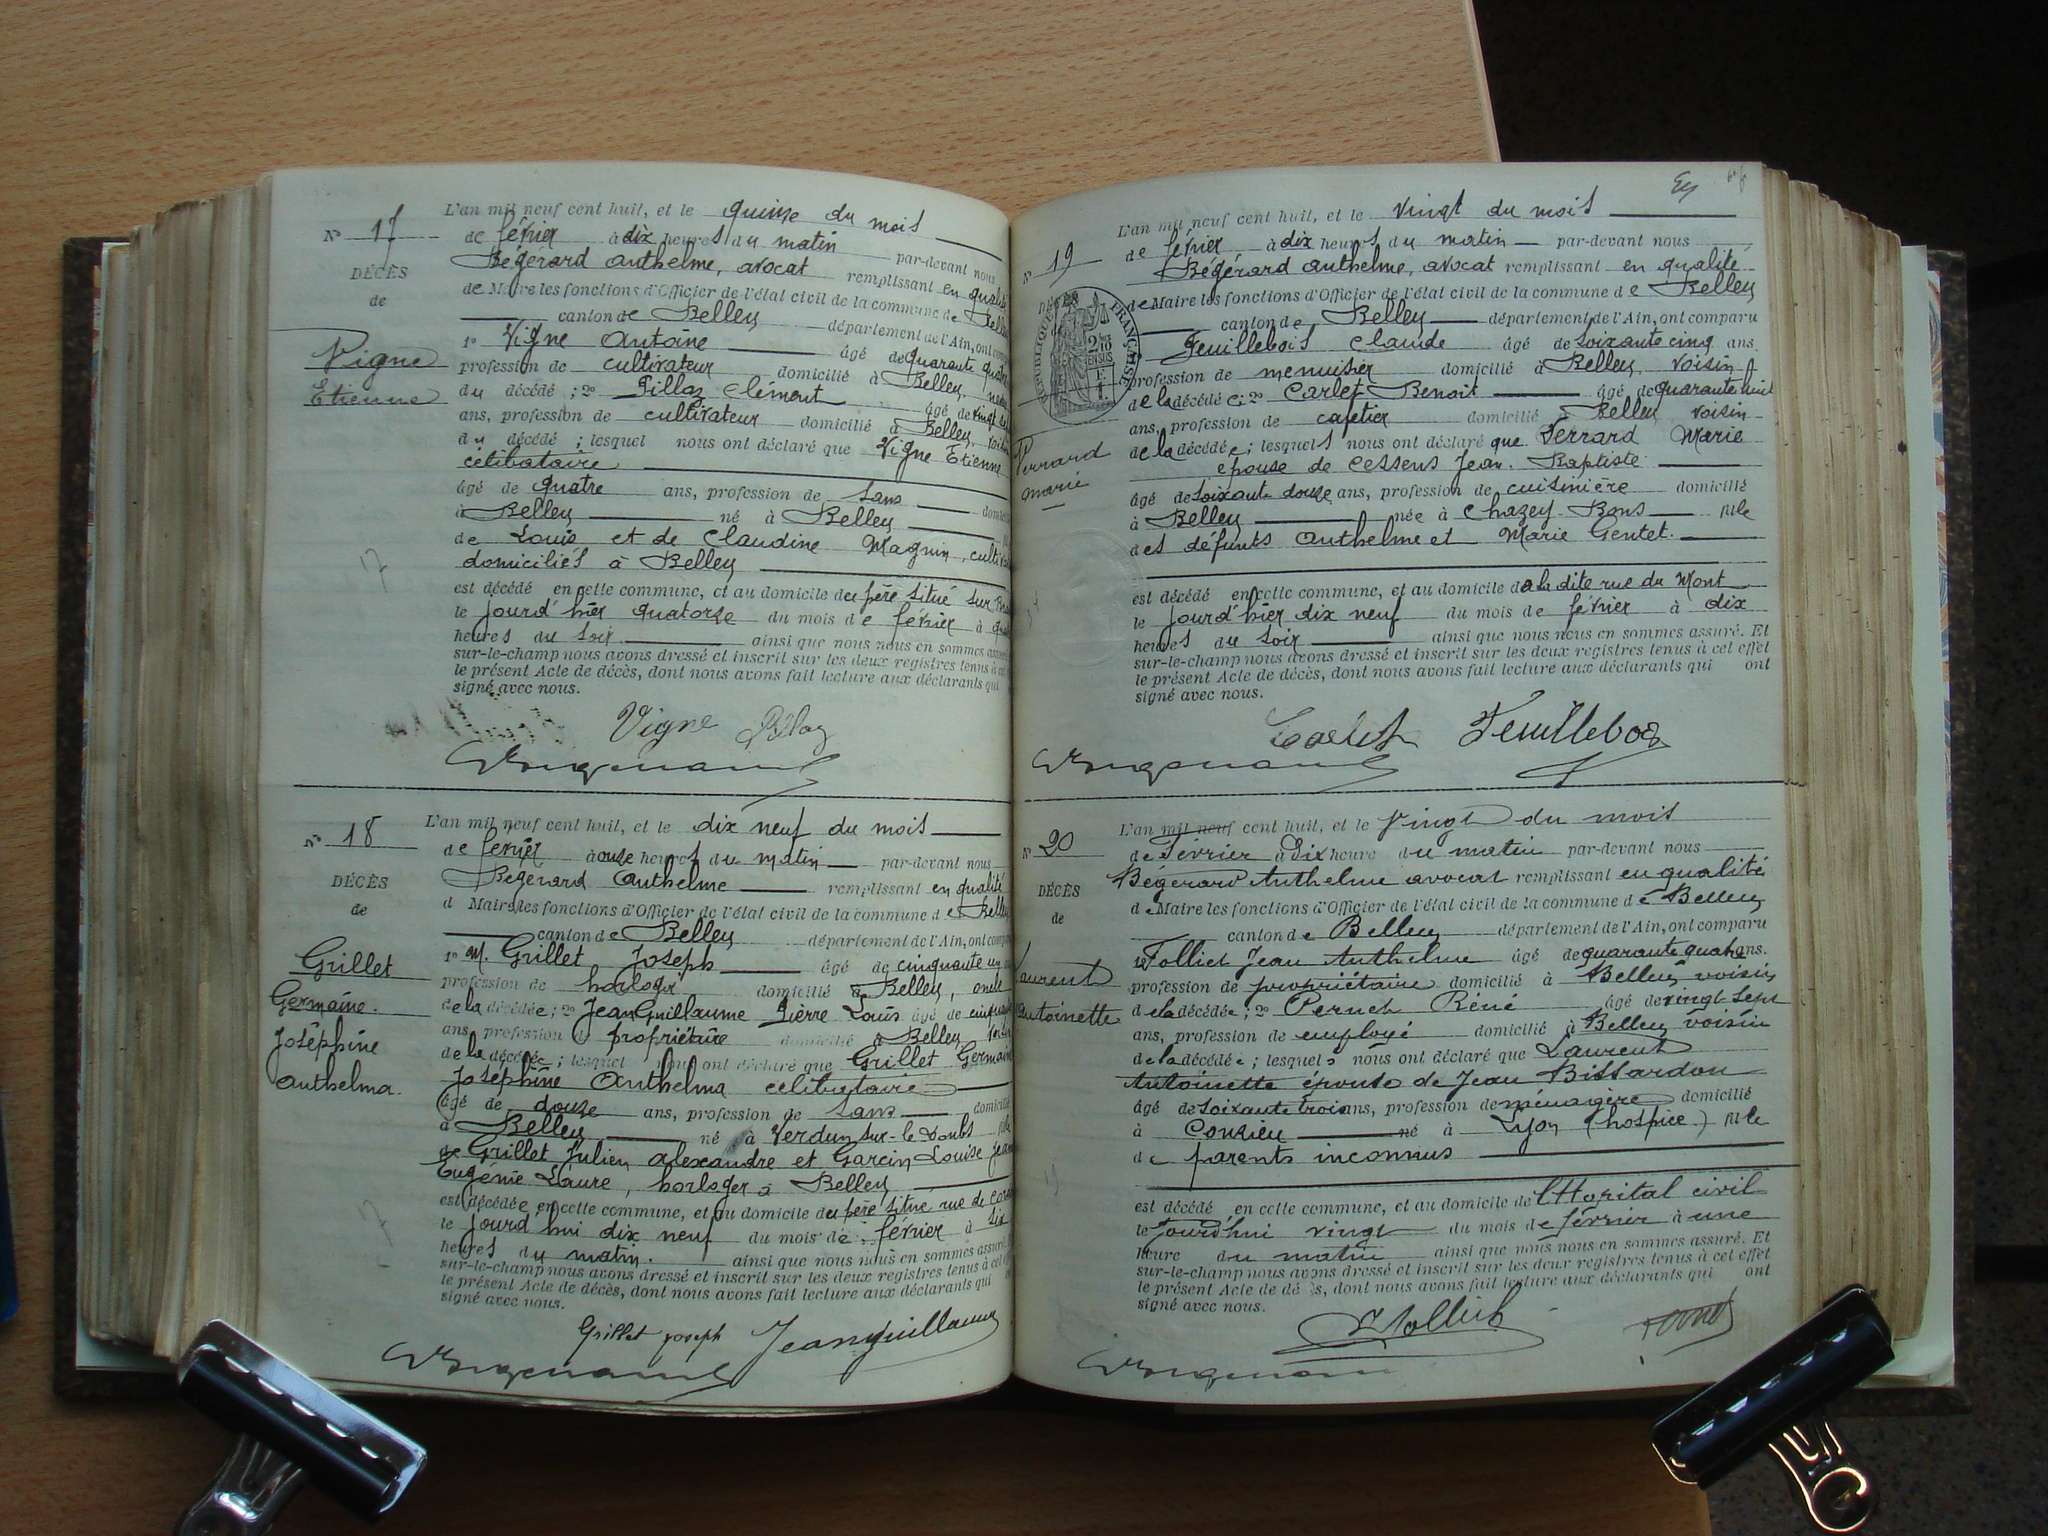 N° 17
DÉCÈS
de
Vigne
Etienne
L'an mil neuf cent huit, et le quinze du mois
de février à dix heures du matin par-devant nous
Bégérard Anthelme, avocat remplissant en qualité
de Maire les fonctions d'Officier de l'état civil de la commune de
canton de Belley département de l'Ain, ont
1° Vigne Antoine âgé de quarante
profession de cultivateur domicilié à Belley
du décédé ; 2° Pillaz Clément âgé de vingt
ans, profession de cultivateur domicilié à Belley
du décédé ; lesquel nous ont déclaré que Vigne Etienne
célibataire
âgé de quatre ans, profession de sans
à Belley né à Belley
de Louis et de Claudine Magnin,
domiciliés à Belley
est décédé en cette commune, et au domicile du père situé sur
le jourd'hier quatorze du mois de février à
heures du soir ainsi que nous nous en sommes
sur-le-champ nous avons dressé et inscrit sur les deux registres tenus à
le présent Acte de décès, dont nous avons fait lecture aux déclarants qui
signé avec nous.
Vigne Pillaz
N° 18
DÉCÈS
de
Grillet
Germaine.
Joséphine
Anthelma.
L'an mil neuf cent huit, et le dix neuf du mois
de février à onze heures du matin par-devant nous
Bégérard Anthelme remplissant en qualité
d Maire les fonctions d'Officier de l'état civil de la commune de
canton de Belley département de l'Ain, ont
1° M. Grillet Joseph âgé de cinquante un
profession de horloger domicilié à Belley, oncle
de la décédée ; 2° JeanGuillaume Pierre Louis âgé de
ans, profession d propriétaire domicilié à Belley
de la décédée ; lesquel nous ont déclaré que Grillet
Joséphine Anthelma célibataire
âgé de douze ans, profession de sans
à Belley né à Verdun-sur-le Doubs
de Grillet Julien Alexandre et Garcin Louise
Eugénie Laure, horloger à Belley
est décédée en cette commune, et au domicile du père situé rue de
le jourd'hui dix neuf du mois de février à six
heures du matin. ainsi que nous nous en sommes
sur-le-champ nous avons dressé et inscrit sur les deux registres tenus à cet
le présent Acte de décès, dont nous avons fait lecture aux déclarants qui
signé avec nous.
Grillet Joseph Jeanguillaume
N° 19
DÉCÈS
RÉPUBLIQUE FRANÇAISE
Perrard
Marie
L'an mil neuf cent huit, et le vingt du mois
de février à dix heures du matin par-devant nous
Bégérard Anthelme, avocat remplissant en qualité
de Maire les fonctions d'Officier de l'état civil de la commune de Belley
canton de Belley département de l'Ain, ont comparu
Feuillebois Claude âgé de soixante cinq ans
profession de menuisier domicilié à Belley voisin
de la décédée ; 2° Carlet Benoit âgé de quarante huit
ans, profession de cafetier domicilié à Belley voisin
de la décédée ; lesquels nous ont déclaré que Perrard Marie
épouse de Cessens Jean. Baptiste
âgé de soixante douze ans, profession de cuisinière domicilié
à Belley née à Chazey-Bons fille
des défunts Anthelme et Marie Gentet.
est décédé en cette commune, et au domicile de la dite rue du Mont
le jourd'hier dix neuf du mois de février à dix
heures du soir ainsi que nous nous en sommes assuré. Et
sur-le-champ nous avons dressé et inscrit sur les deux registres tenus à cet effet
le présent Acte de décès, dont nous avons fait lecture aux déclarants qui ont
signé avec nous.
Carlet Feuillebois
N° 20
DÉCÈS
de
Laurent
Antoinette
L'an mil neuf cent huit, et le Vingt du mois
de Février à Dix heure du matin par-devant nous
Bégérard Anthelme avocat remplissant en qualité
de Maire les fonctions d'Officier de l'état civil de la commune de Belley
canton de Belley département de l'Ain, ont comparu
Folliet Jean Anthelme âgé de quarante quatre ans.
profession de propriétaire domicilié à Belley voisin
de la décédée ; 2° Pernet Réné âgé de vingt sept
ans, profession de employé domicilié à Belley voisin
de la décédée ; lesquels nous ont déclaré que Laurent
Antoinette épouse de Jean Bissardon
âgé de soixante trois ans, profession de ménagère domicilié
à Conzieu né à Lyon (hospice) fille
de parents inconnus
est décédé en cette commune, et au domicile de l'Hopital civil
le jourd'hui vingt du mois de février à une
heure du matin ainsi que nous nous en sommes assuré. Et
sur-le-champ nous avons dressé et inscrit sur les deux registres tenus à cet effet
le présent Acte de décès, dont nous avons fait lecture aux déclarants qui ont
signé avec nous.
Folliet